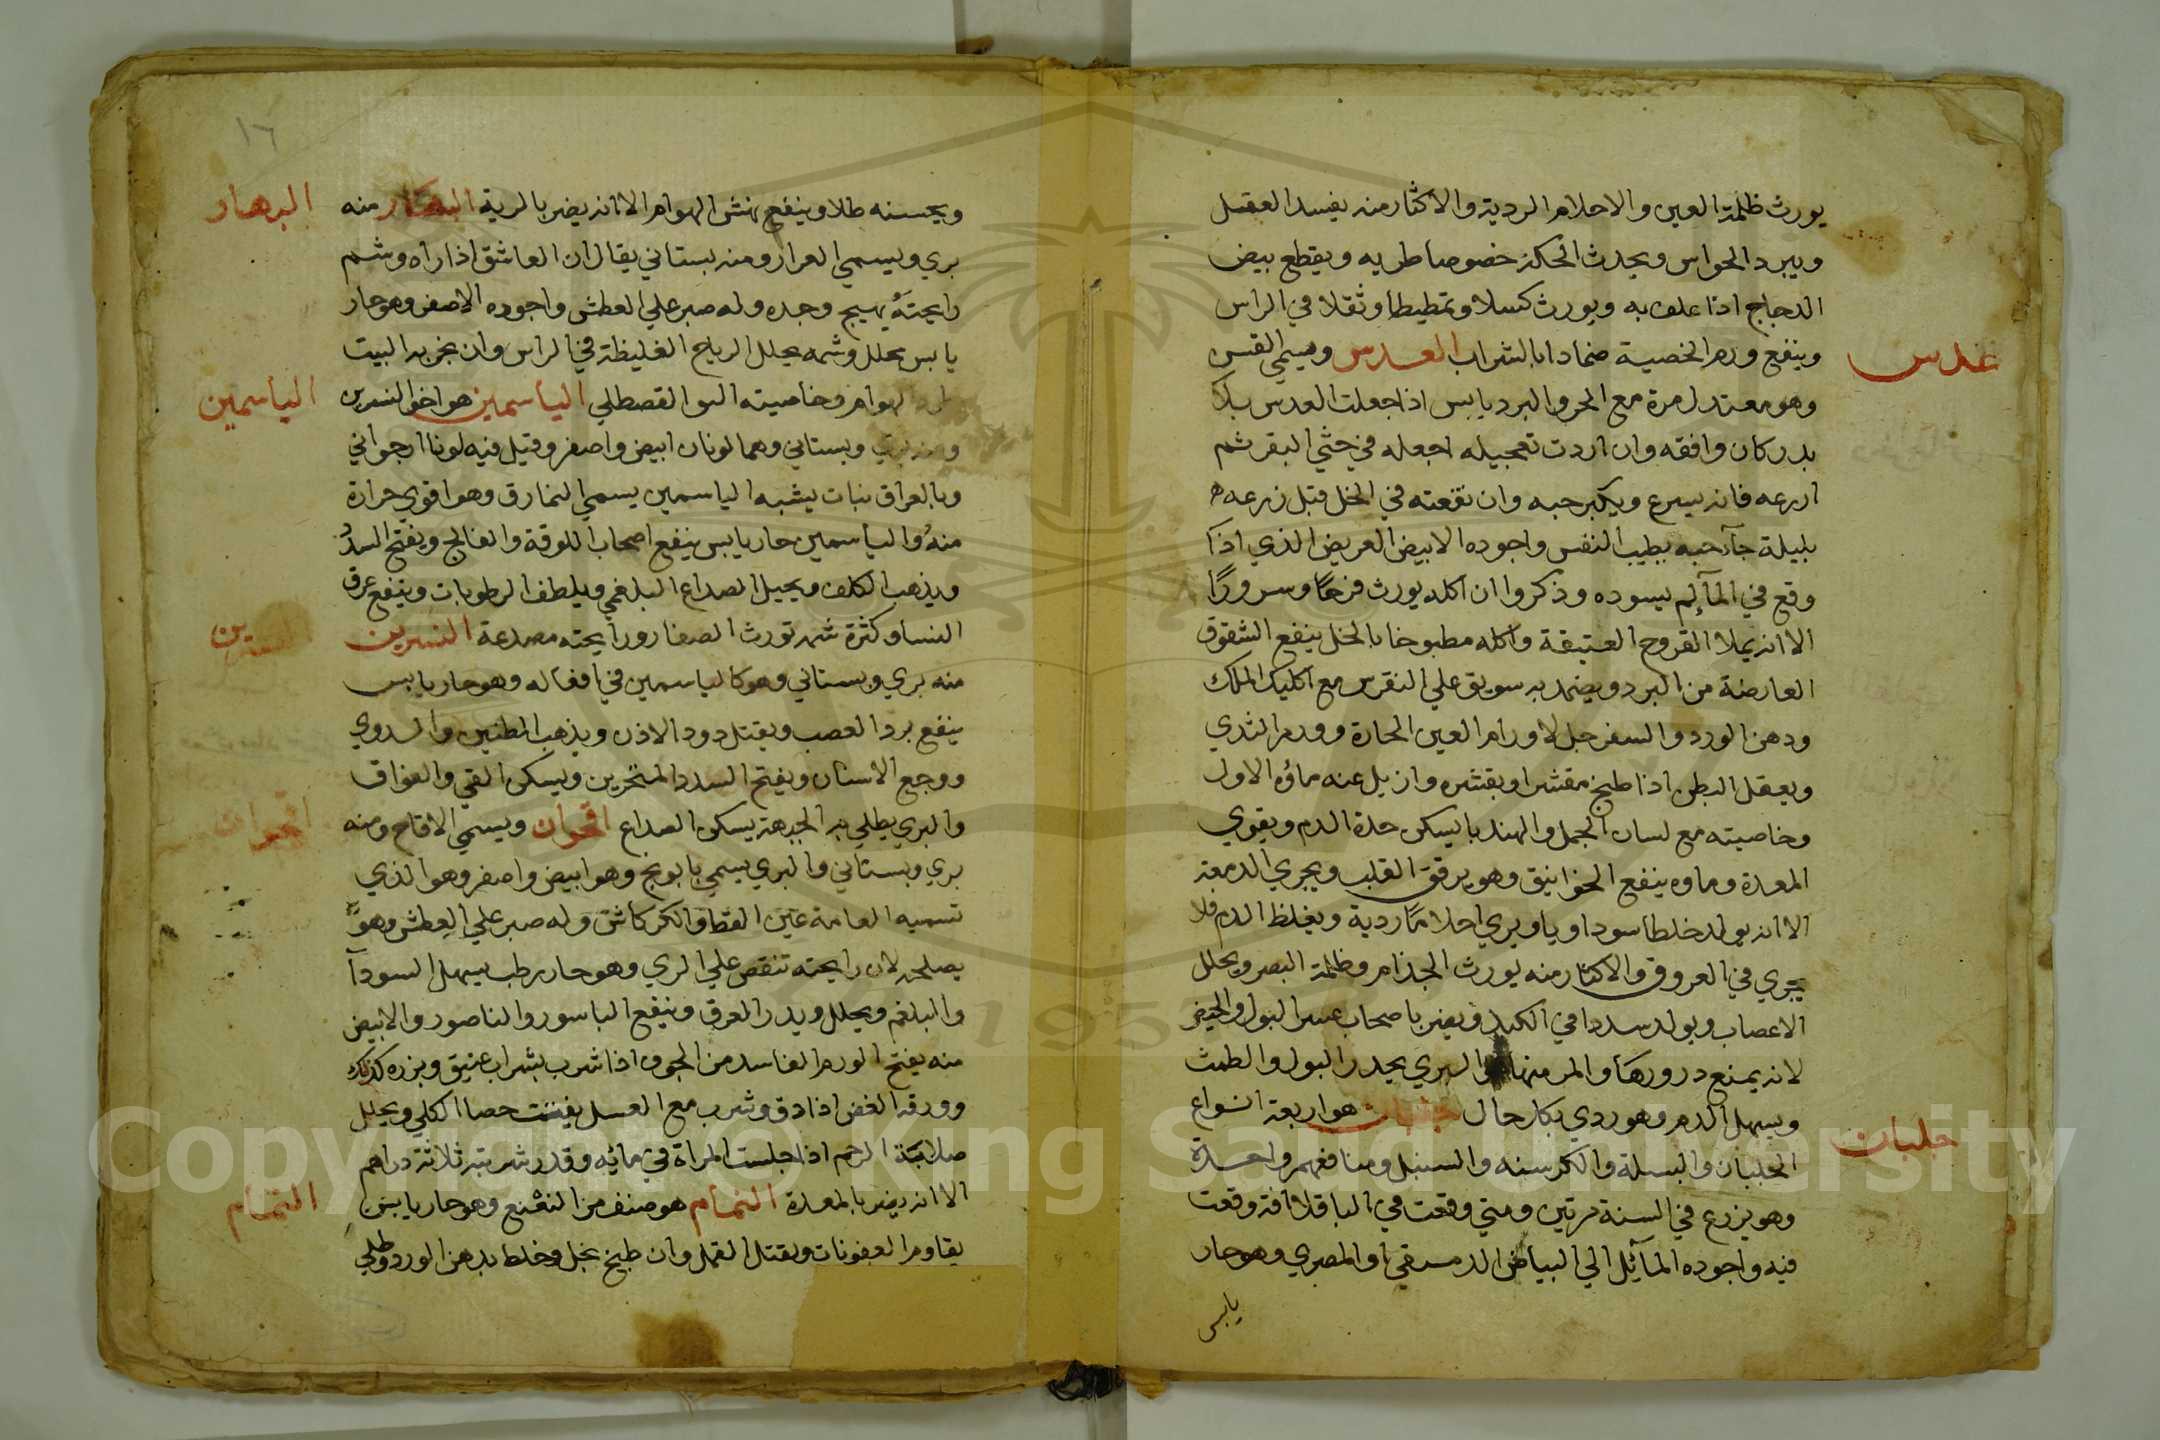 يورث ظلمة العين والاحلام الردية والاكثار منه يفسد العقل
ويبرد الحواس ويحدث الحكة خصوصا طريه ويقطع بيض
الدجاج اذا علف به ويورث كسلا وتمطيطا وثقلا في الراس
وينفع ورم الخصية ضمادا بالشراب العدس ويسمي القس
عدس
وهو معتدل مرة مع الحر والبرد يابس اذا جعلت العدس
بدر كان وافقه وان اردت تعجيله اجعله في خثي البقر ثم
ازرعه فانه يسرع ويكبر حبه وان نقعته في الخل قبل زرعه
بليلة جآ حبه يطيب النفس واجوده الابيض العريض الذي اذا
وقع في المآ لم يسوده وذكروا ان اكله يورث فرحًا وسرورًا
الا انه يملا القروح العتيقة واكله مطبوخا بالخل ينفع الشقوق
العارضة من البرد ويضمد به سويق علي النقرس مع اكليل الملك
ودهن الورد والسفرجل لاورام العين الحارة وورم الثدي
ويعقل البطن اذا طبخ مقشرا وبقشره وازيل عنه ماؤه الاول
وخاصيته مع لسان الحمل والهندبا يسكن حدة الدم ويقوي
المعدة وماوه ينفع الخوانيق وهو يرقق القلب ويجري الدمعة
الا انه يولد خلطا سوداويا ويري احلامًا ردية ويغلظ الدم فلا
يجري في العروق والاكثار منه يورث الجذام وظلمة البصر ويحلل
الاعصاب ويولد سددا في الكبد ويضر باصحاب عسر البول والحيض
لانه يمنع درورها والمر منها البري يحدر البول والطمث
ويسهل الدم وهو ردي بكل حال جلبان هو اربعة انواع
جلبان
الجلبان والبسلة والكرسنه والسنبل ومنافعهم واحدة
وهو يزرع في السنة مرتين ومتي وقعت في الباقلا افة وقعت
فيه واجوده المآئل الي البياض الدمشقي او المصري وهو حار
يابس
١٦
ويحسنه طلا وينفع نهش الهوام الا انه يضر بالرية البهار منه
البهار
بري ويسمي العرار ومنه بستاني يقال ان العاشق اذا راه وشم
رايحتهُ يهيج وجده وله صبر علي العطش واجوده الاصفر وهو حار
يابس يحلل وشمه يحلل الرياح الغليظة في الراس وان بخر به البيت
طرد الهوام وخاصيته القصطلي الياسمين هو اخو النسرين
الياسمين
ومنه بري وبستاني وهما لونان ابيض واصفر وقيل فيه لونا ارجواني
وبالعراق نبات يشبه الياسمين يسمي النمارق وهو اقوي حرارة
منهُ والياسمين حار يابس ينفع اصحاب اللوقة والفالج ويفتح السدد
ويذهب الكلف ويحيل الصداع البلغمي ويلطف الرطوبات وينفع عرق
النسا وكثرة شمه تورث الصفار ورايحته مصدعة النسرين
النسرين
منه بري وبستاني وهو كالياسمين في افعاله وهو حار يابس
ينفع برد العصب ويقتل دود الاذن ويذهب الطنين والدوي
ووجع الاسنان ويفتح السدد المنخرين ويسكن القي والفواق
والبري يطلي به الجبهة يسكن الصداع اقحوان ويسمي الاقاح ومنه
اقحوان
بري وبستاني والبري يسمي بابونج وهو ابيض واصفر وهو الذي
تسميه العامة عين القط والكركاش وله صبر علي العطش وهو
يصلحه لان رايحته تنقص علي الري وهو حار رطب يسهل السودآ
والبلغم ويحلل ويدر العرق وينفع الباسور والناصور والابيض
منه يفتح الورم الفاسد من الجوف اذا شرب بشراب عتيق وبزره كذلك
وورقه الغض اذا دق وشرب مع العسل يفتت حصا الكلي ويحلل
صلابة الرحم اذا جلست المراة في مائه وقدر شربته ثلاثة دراهم
الا انه يضر بالمعدة النمام هو صنف من النعنع وهو حار يابس
النمام
يقاوم العفونات ويقتل القمل وان طبخ بخل وخلط بدهن الورد وطلي